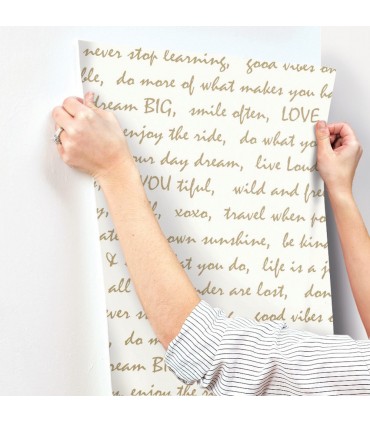 never stop learning, good vibes on
ble, do more of what makes you ha
dream BIG, smile often, LOVE
enjoy the ride, do what yo
our day dream, live Loud
YOU tiful, wild and fre
xoxo, travel when po
own sunshine, be kind
& at you do, life is a j
all nder are lost, don
ver s good vibes o
do m
ream BIG
enjoy the ride